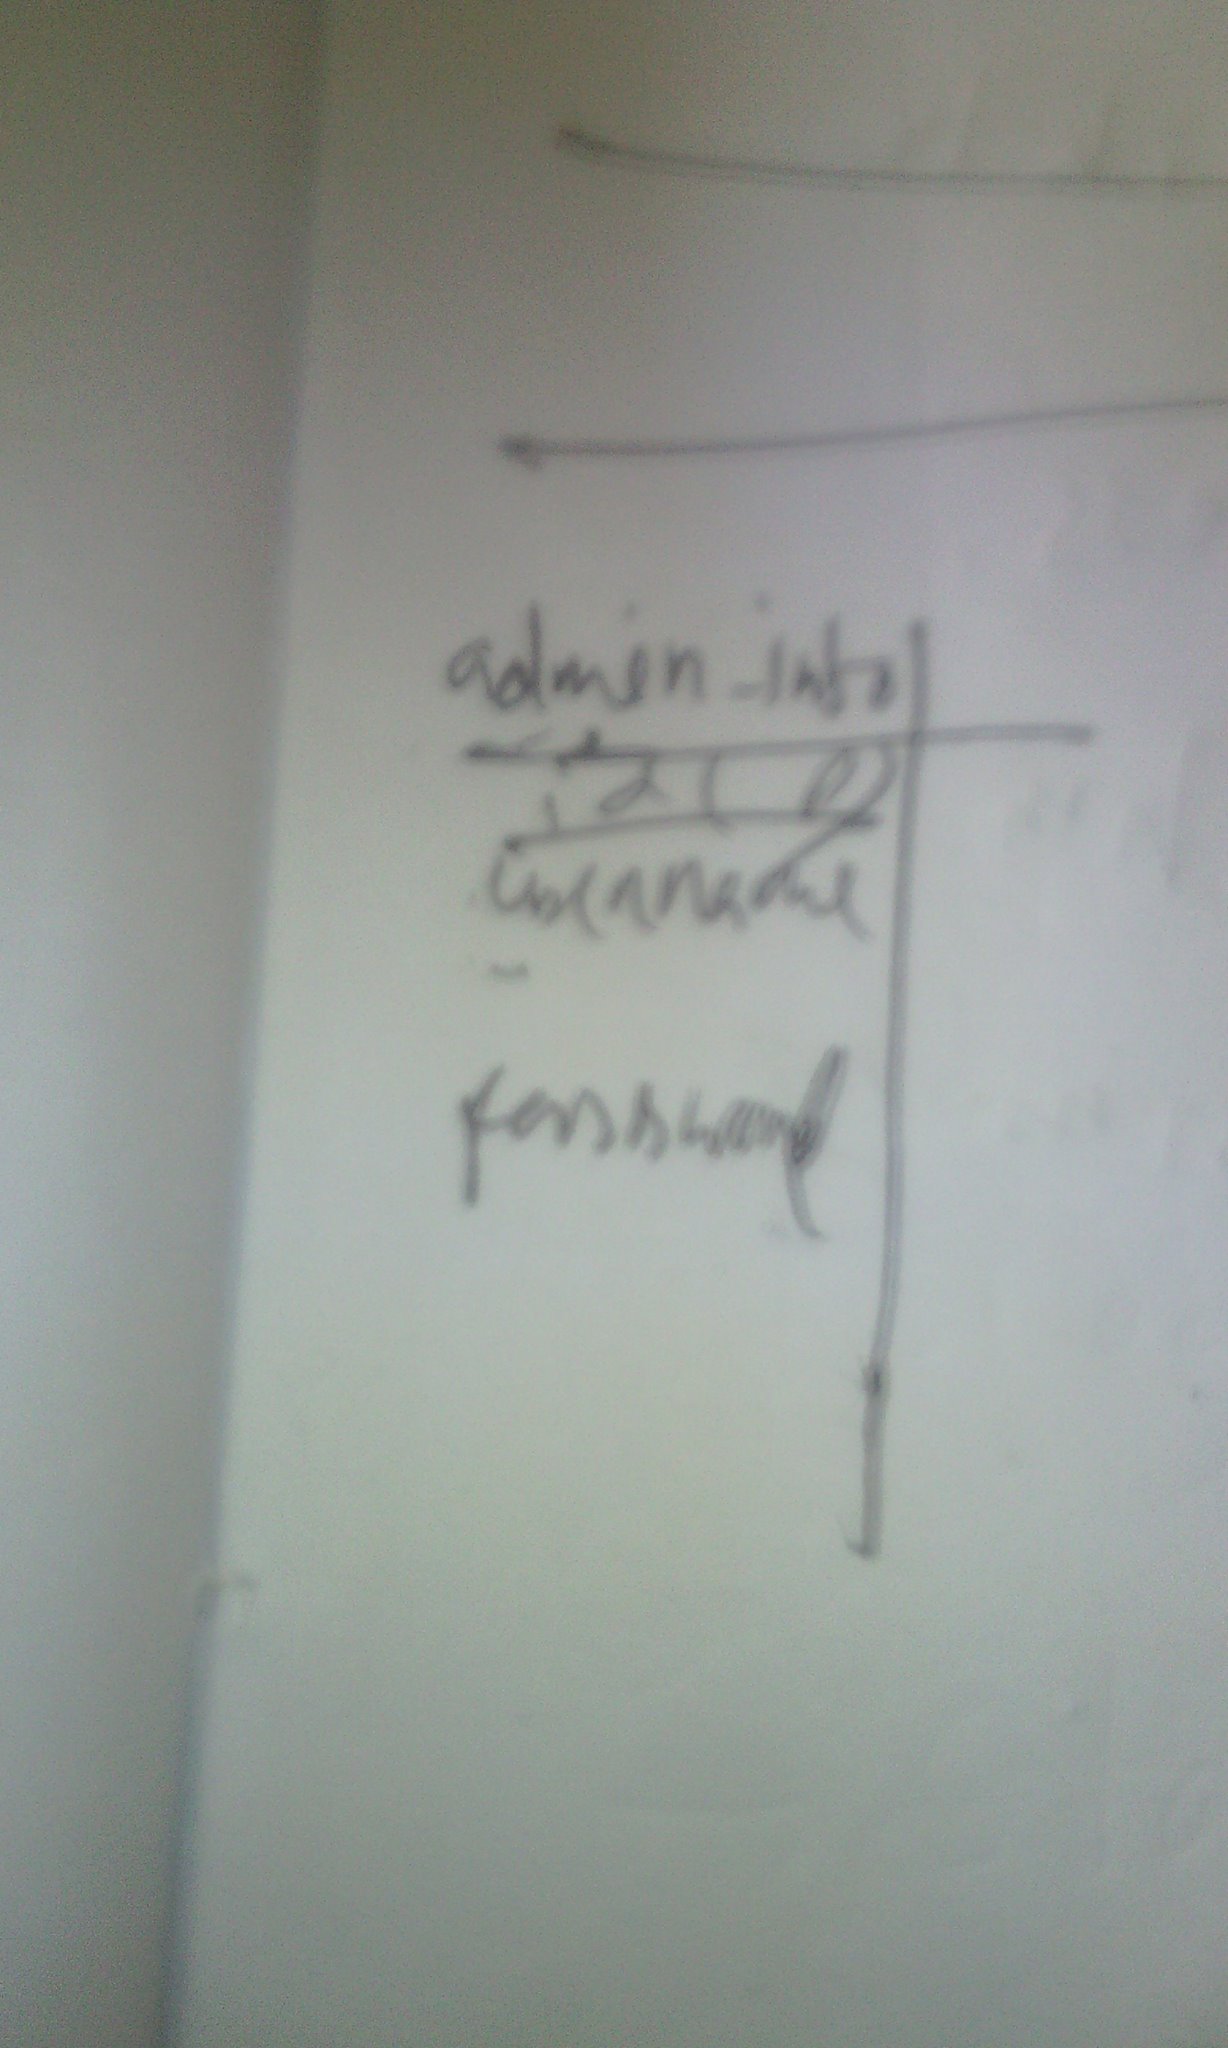 admin_info
id(P)
username
password